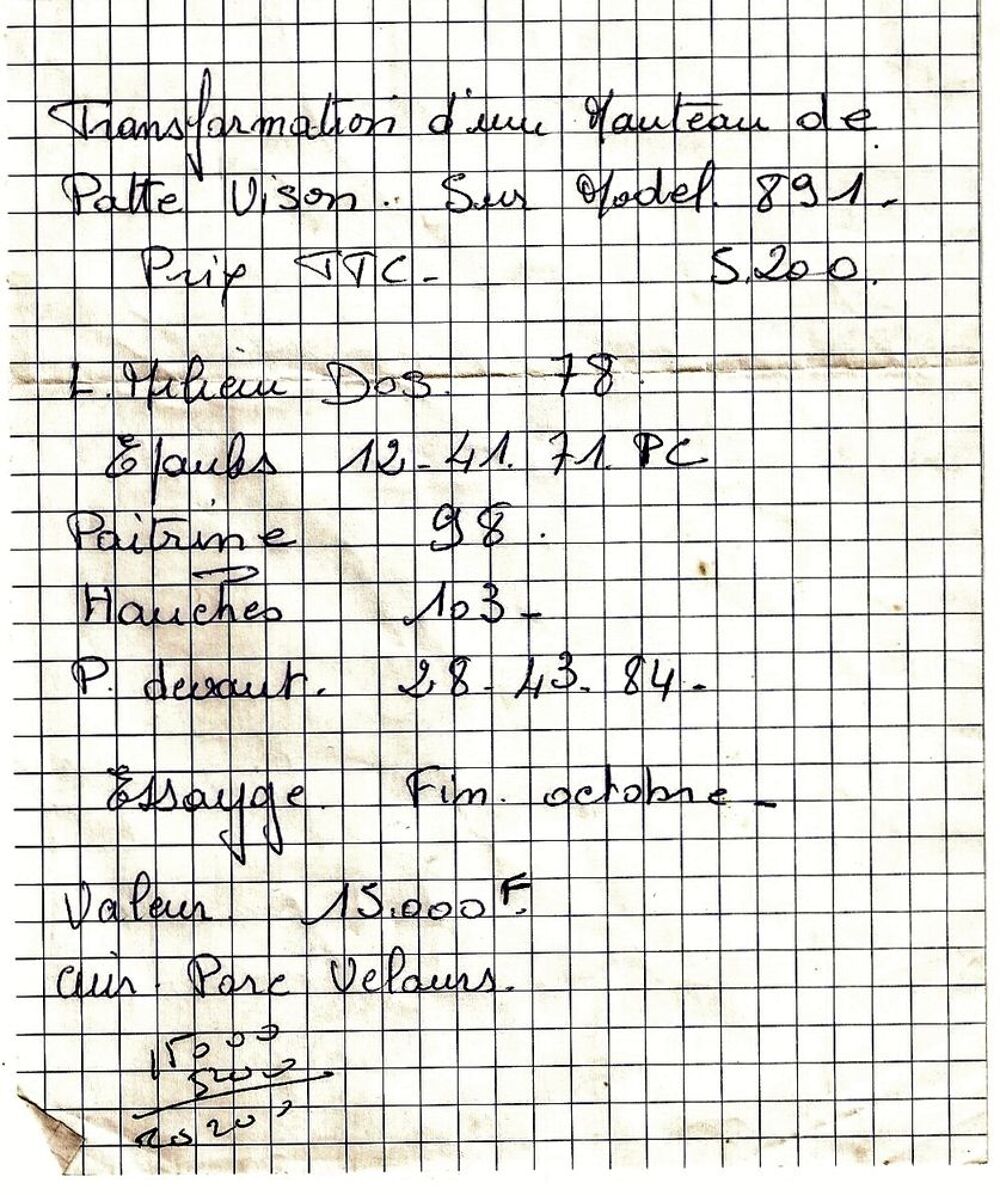 Transformation d'un Manteau de
Patte Vison. Sur Model. 891.
Prix TTC- 5.200.
L. Milieu Dos. 78.
Epauls 12-41. 71. PC
Poitrine 98.
Hanches 103-
P. devant. 28-43-84-
Essayge. Fin. octobre-
Valeur. 15.000F.
Cuir. Porc Velours.
15000
5200
20200